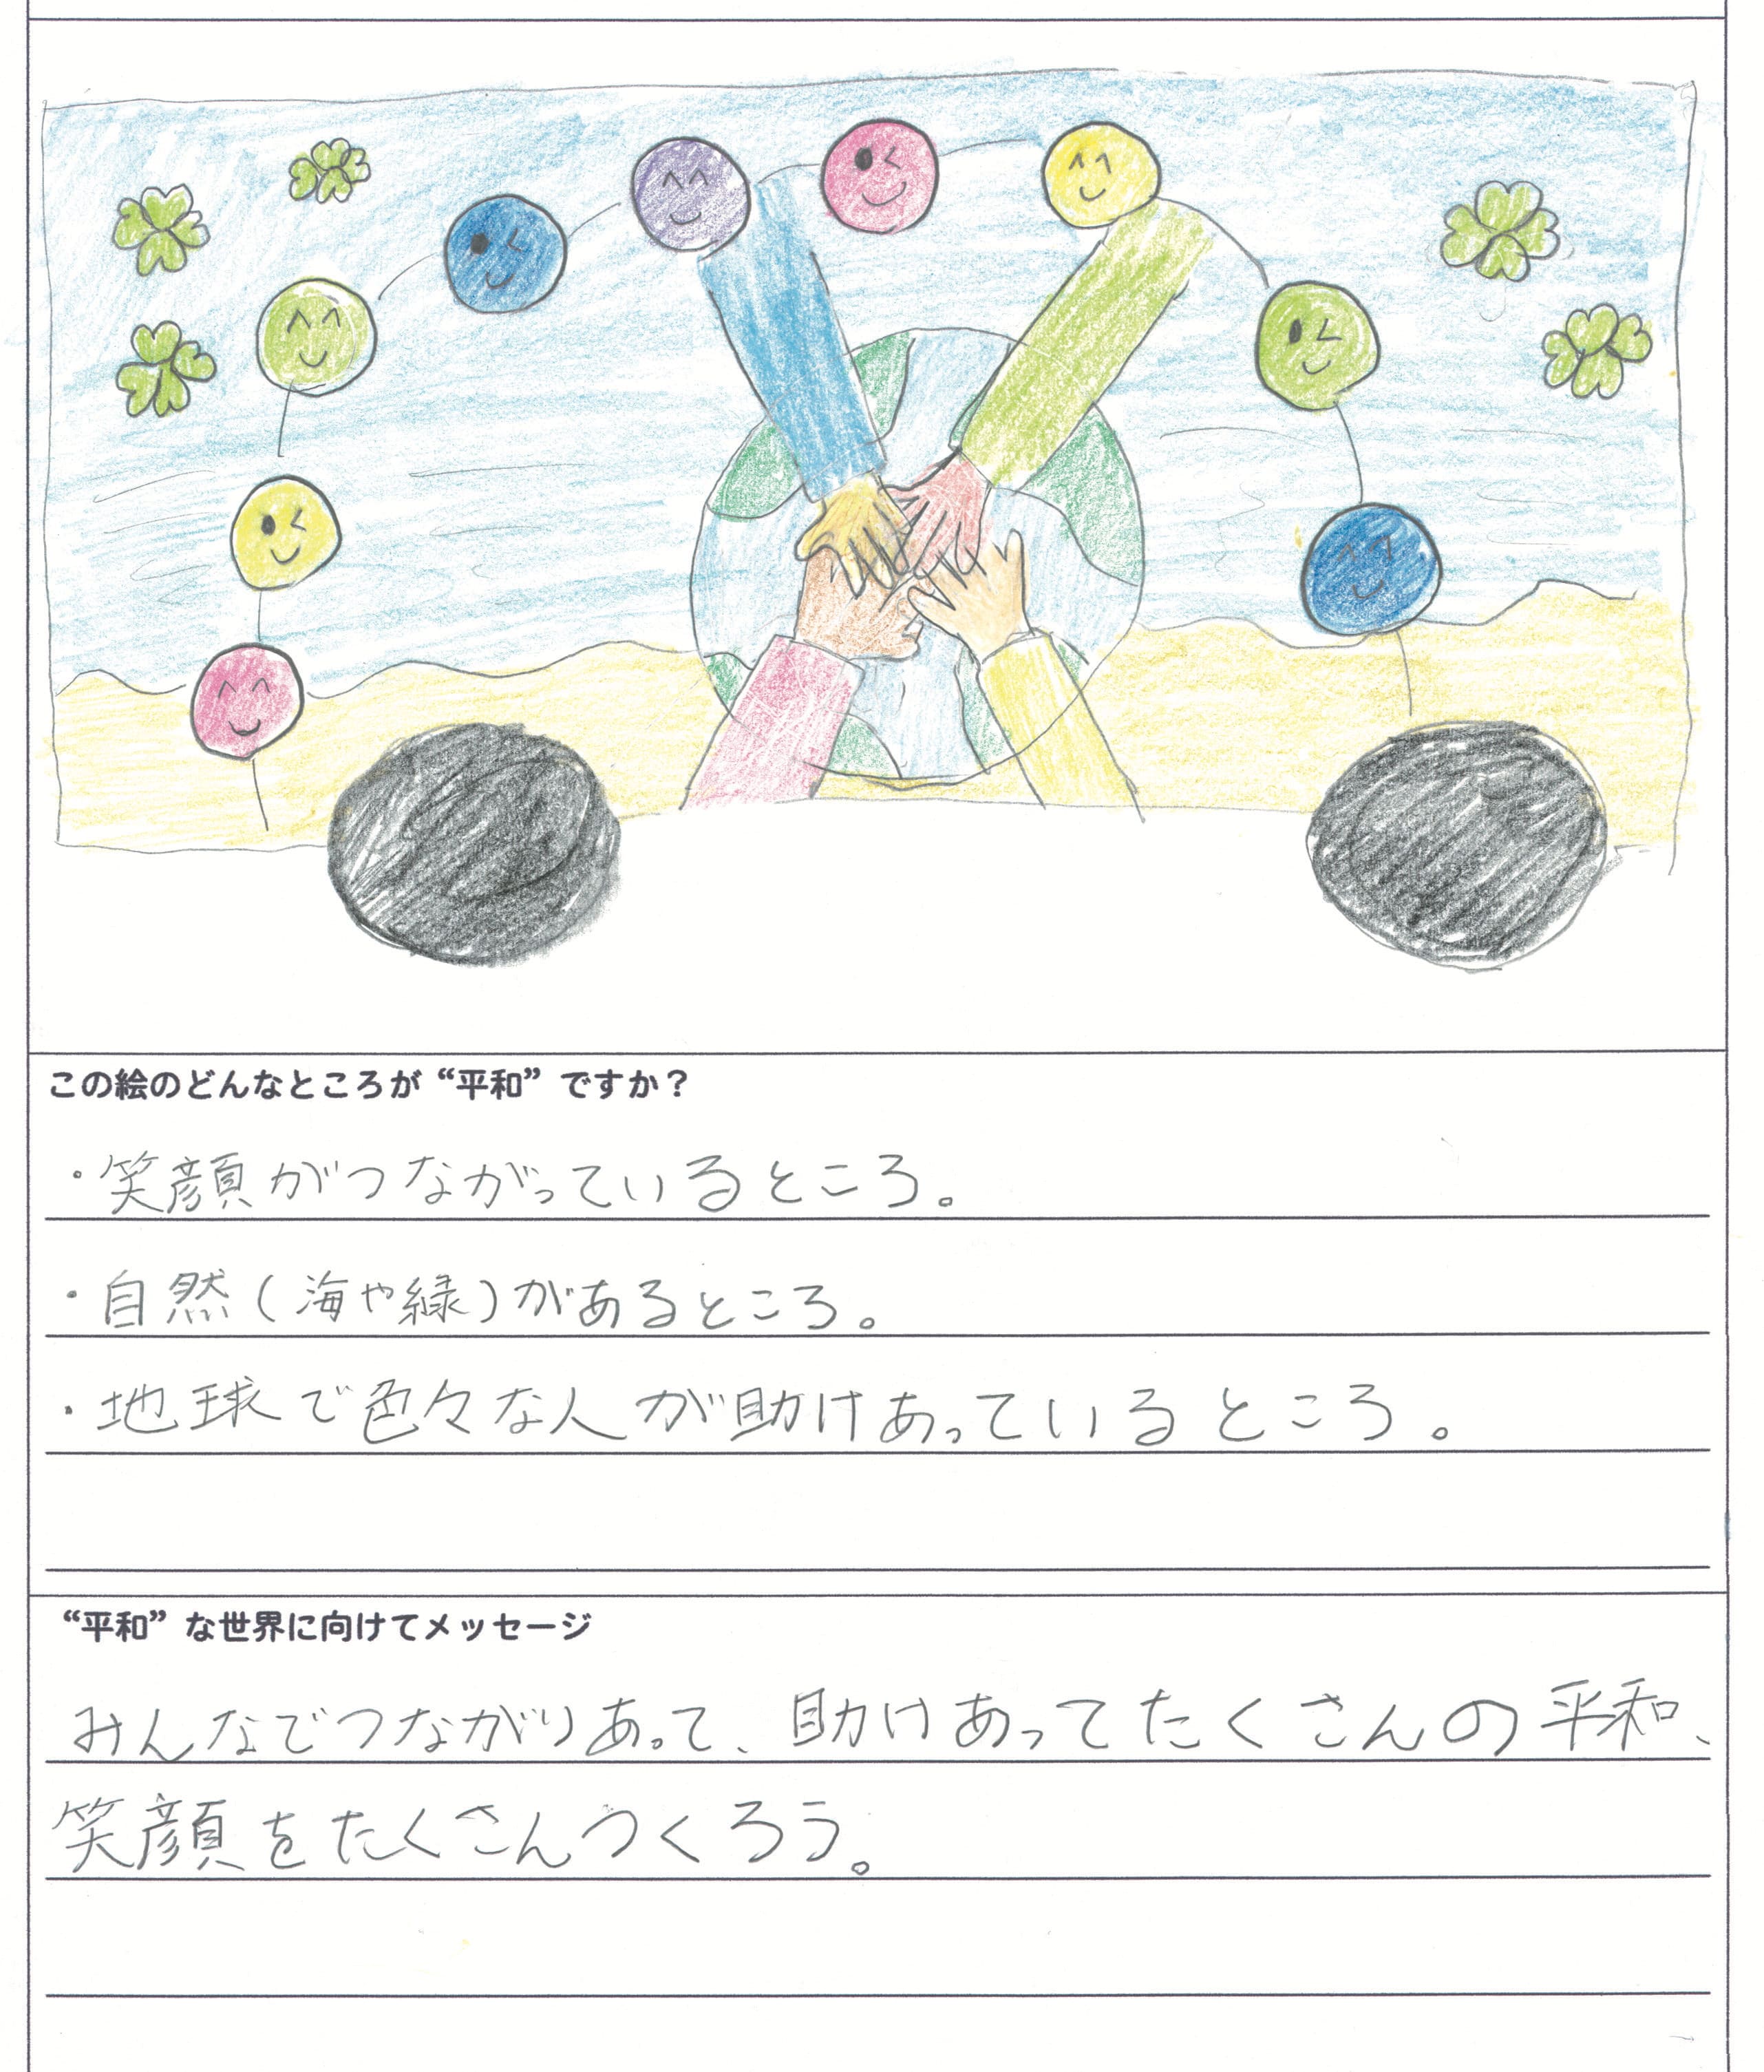 この絵のどんなところが“平和”ですか？
・笑顔がつながっているところ。
・自然(海や緑)があるところ。
・地球で色々な人が助けあっているところ。
“平和”な世界に向けてメッセージ
みんなでつながりあって、助けあってたくさんの平和、
笑顔をたくさんつくろう。